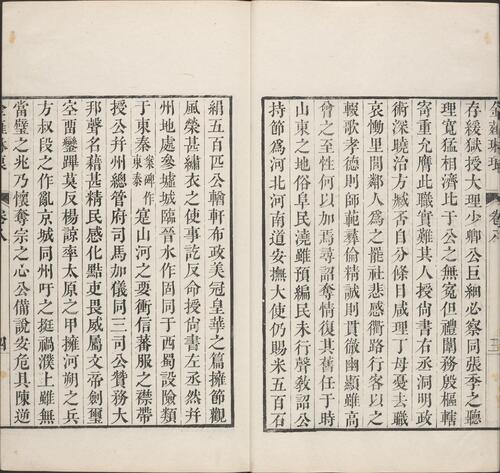 存緩獄授大理少卿公巨細必察同張季之聽
理寬猛相濟比于公之無寃但禮闈務殷樞轄
寄重允膺此職實難其人授尚書右丞洞明政
術深曉治方臧否自分條目咸理丁母憂去職
哀慟里閭鄰人爲之罷社悲感衢路行客以之
輟歌孝德則師範彝倫精誠則貫徹幽顯雖高
曾之至性何以加焉尋詔奪情復其舊任于時
山東之地俗阜民澆雖預編民未行聲敎詔公
持節爲河北河南道安撫大使仍賜米五百石
絹五百匹公輶軒布政美冠皇華之篇擁節觀
風榮甚繡衣之使事訖反命授尚書左丞然幷
州地處參墟城臨晉水作固同于西蜀設險類
于東秦案碑作東泰寔山河之要衝信蕃服之襟帶
授公幷州總管府司馬加儀同三司公贊務大
邦聲名藉甚精民感化點吏畏威屬文帝劍璽
空畱鑾蹕莫反楊諒率太原之甲擁河朔之兵
方叔段之作亂京城同州吁之挺禍濮上雖無
當璧之兆乃懷奪宗之心公備說安危具陳逆
卷八
三
卷八
四